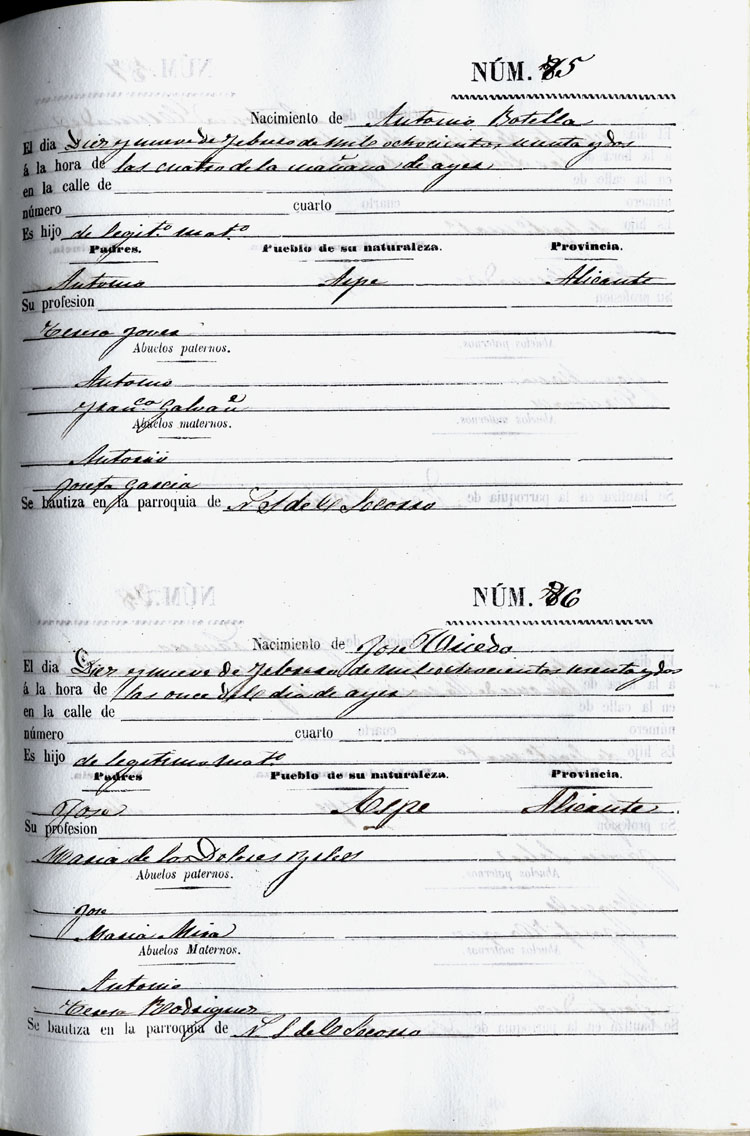 NÚM. 85
Nacimiento de Antonio Botella
El dia Diez y nueve de Febrero de mil ochocientos senta y dos
á la hora de las cuatro de la mañana de ayer
en la calle de
número cuarto
Es hijo de legit.º mat.º
Padres. Pueblo de su naturaleza. Provincia.
Antonio Aspe Alicante
Su profesion
Teresa
Abuelos paternos.
Antonio
Fran.ca Galvañ
Abuelos maternos.
Antonio
Josefa Garcia
Se bautiza en la parroquia de N S de el Socorro
NÚM. 86
Nacimiento de Jose
El dia Diez y nueve de Febrero de mil ochocientos senta y dos
á la hora de las once del dia de ayer
en la calle de
número cuarto
Es hijo de legitimo mat.º
Padres Pueblo de su naturaleza. Provincia.
Jose Aspe Alicante
Su profesion
Maria de los Dolores
Abuelos paternos.
Jose
Maria Mira
Abuelos Maternos.
Antonio
Teresa Rodriguez
Se bautiza en la parroquia de N S de el Socorro